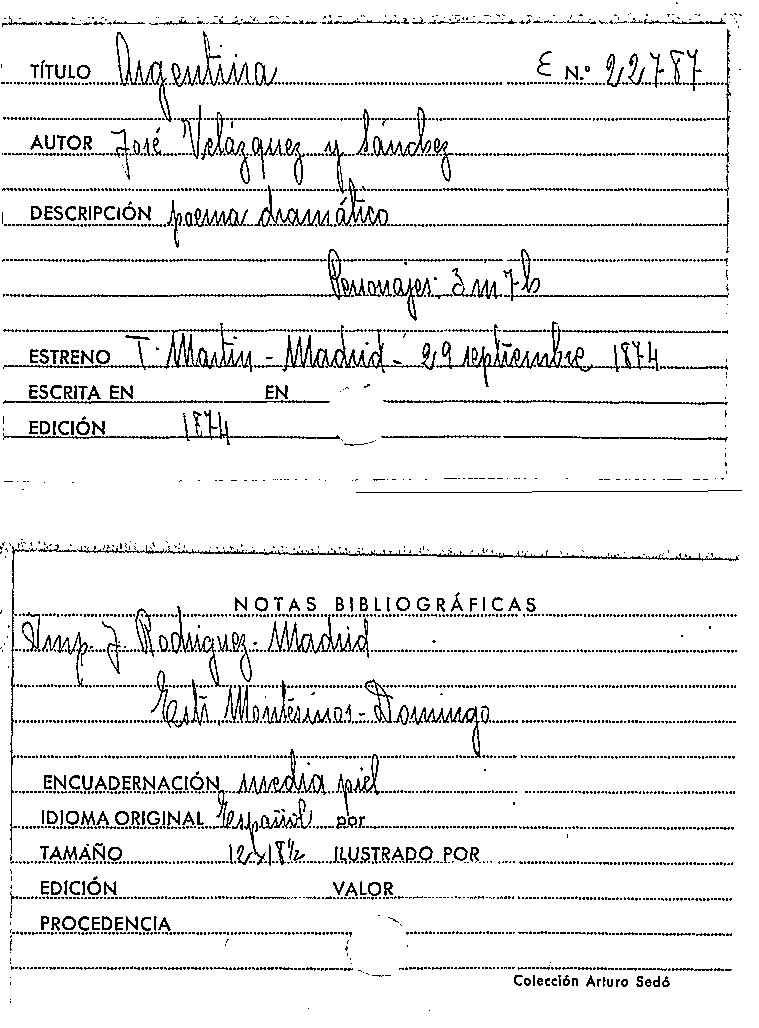 TÍTULO Argentina E N.º 22787
AUTOR José Velázquez y Sánchez
DESCRIPCIÓN poema dramático
Personajes: 3 m 7 h
ESTRENO T. Martin - Madrid - 29 septiembre 1874
ESCRITA EN EN
EDICIÓN 1874
NOTAS BIBLIOGRÁFICAS
Imp. J. Rodriguez - Madrid
Estr. Montesinos - Domingo
ENCUADERNACIÓN media piel
IDIOMA ORIGINAL Español por
TAMAÑO 12x18½ ILUSTRADO POR
EDICIÓN VALOR
PROCEDENCIA
Colección Arturo Sedó